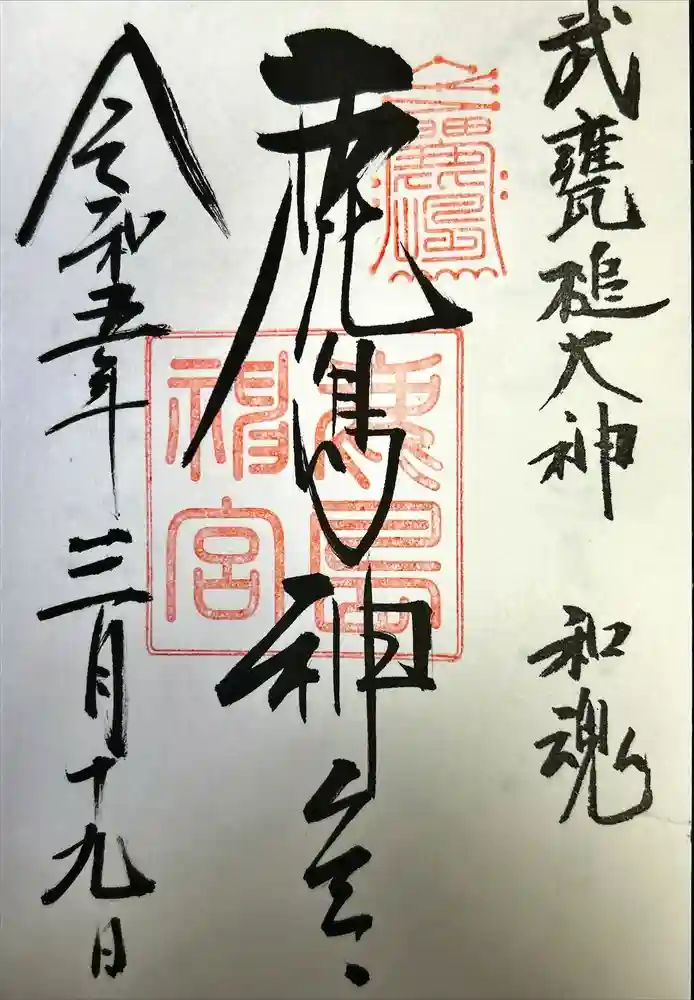 武甕槌大神 和魂
鹿島神宮
令和五年三月十九日
鹿島
神宮